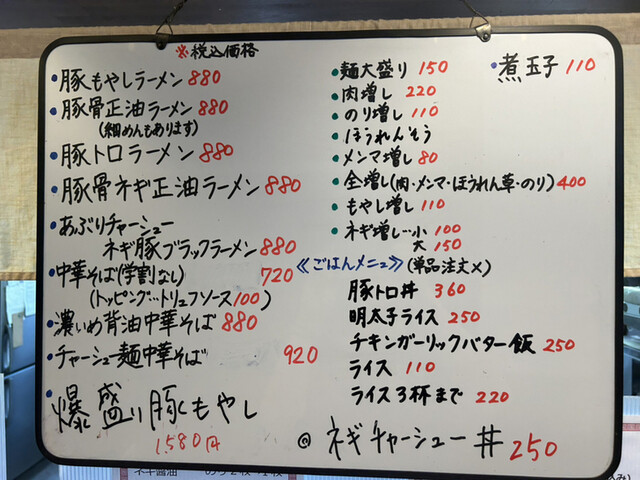 ※税込価格
・豚もやしラーメン 880
・豚骨正油ラーメン 880
(細めんもあります)
・豚トロラーメン 880
・豚骨ネギ正油ラーメン 880
・あぶりチャーシュー
ネギ豚ブラックラーメン 880
・中華そば(学割なし) 720
(トッピング…トリュフソース100)
・濃いめ背油中華そば 880
・チャーシュー麺中華そば 920
・爆盛り豚もやし
1,580円
・麺大盛り 150
・肉増し 220
・のり増し 110
・ほうれんそう
・メンマ増し 80
・全増し(肉・メンマ・ほうれん草・のり) 400
・もやし増し 110
・ネギ増し…小 100
大 150
・煮玉子 110
《ごはんメニュー》(単品注文×)
豚トロ丼 360
明太子ライス 250
チキンガーリックバター飯 250
ライス 110
ライス3杯まで 220
◎ネギチャーシュー丼 250
ネギ醤油